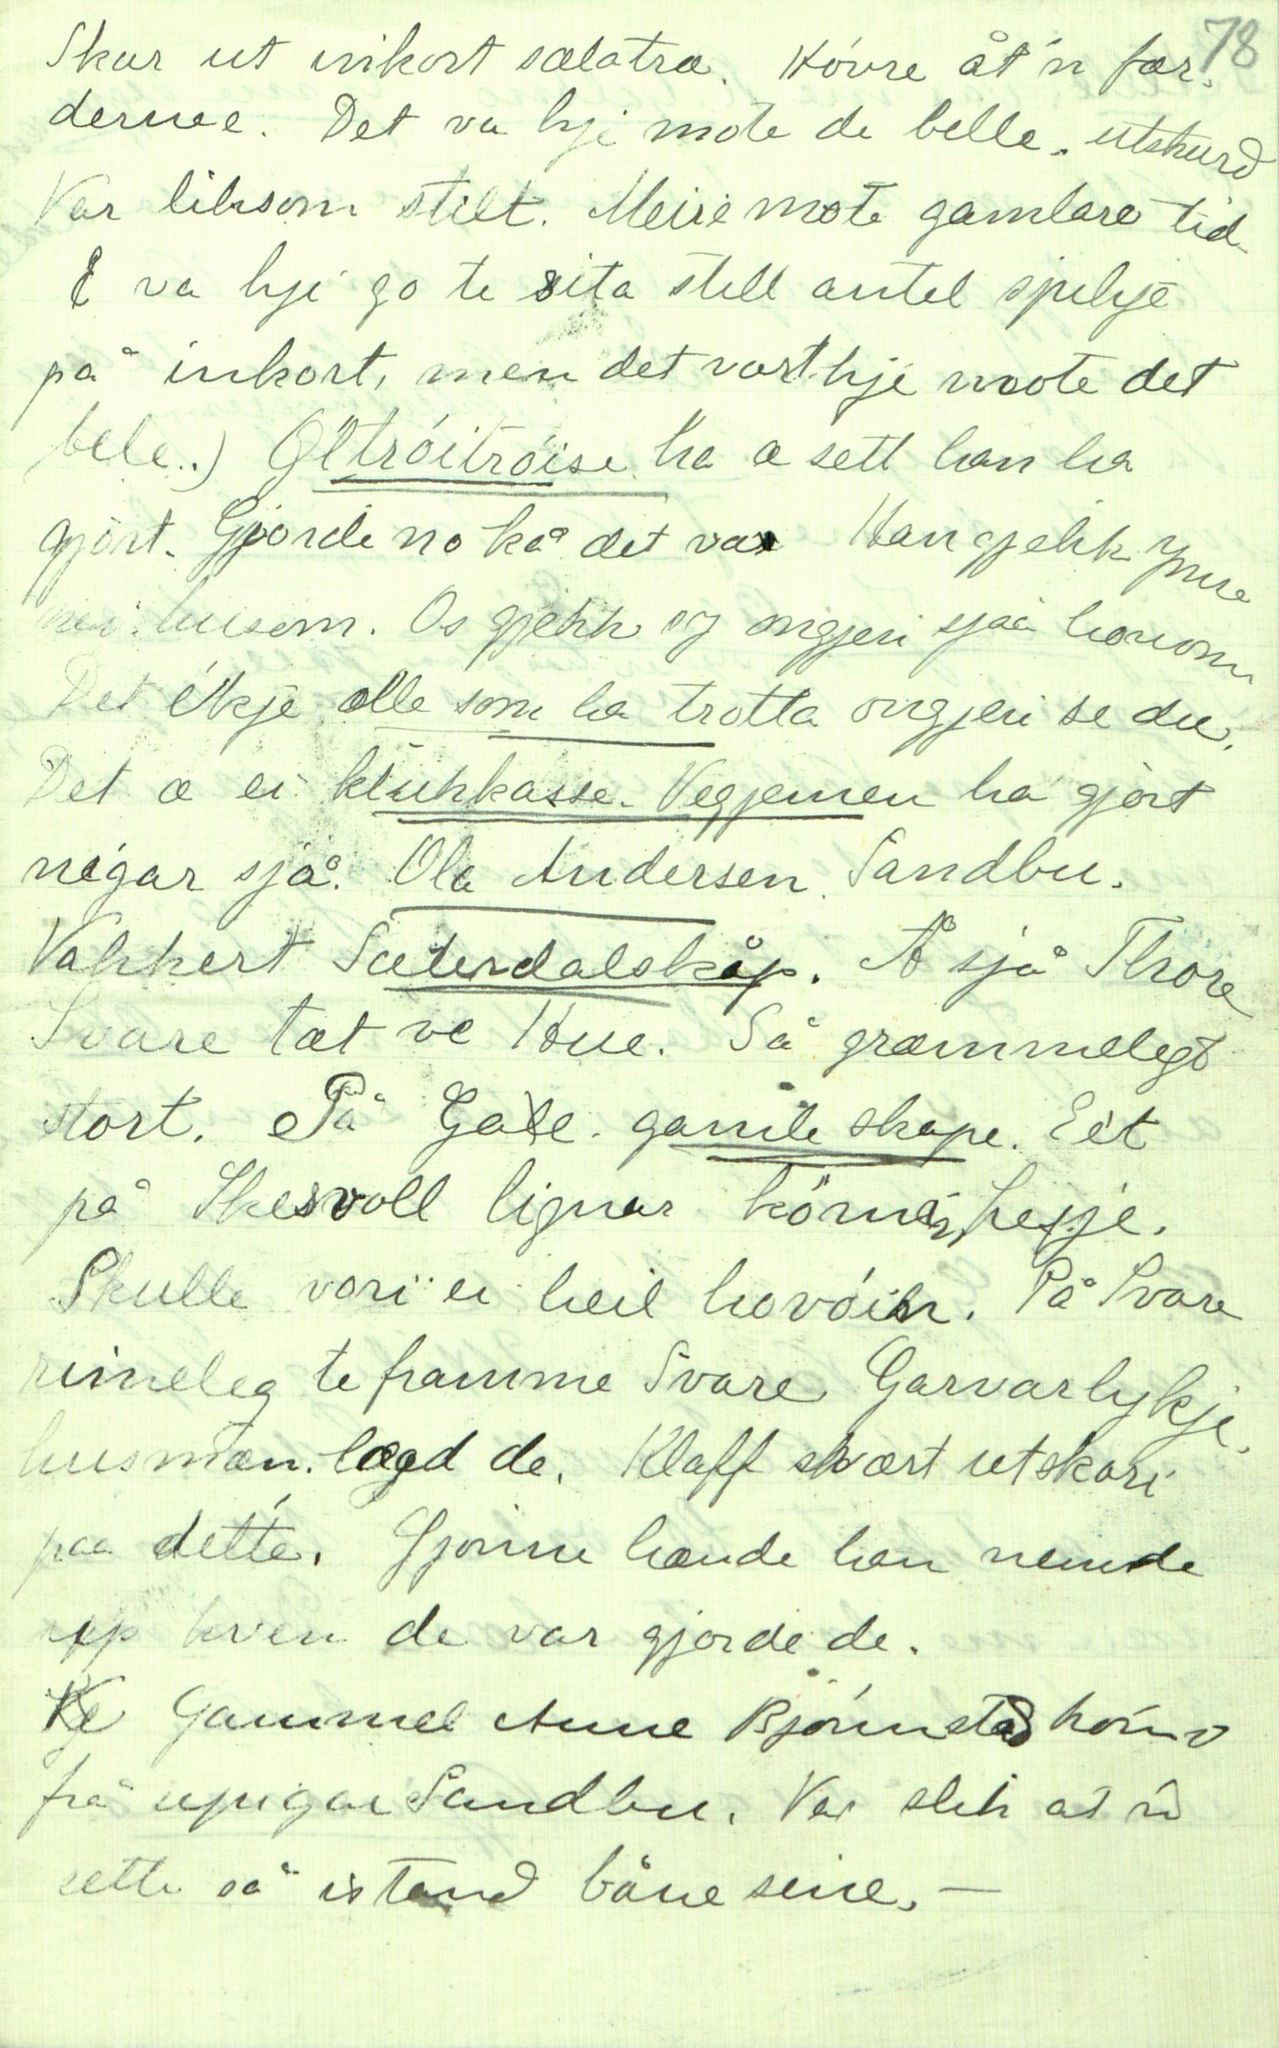 78
Skar ut inkort sælatræ. Hóvre åt'n fær.
dernee. Det va kji mote de belle. utskurd
Var liksom stelt. Meire mote gamlare tid
E va kji go te sita stell antel spikje
på inkort, men det vart kje mote det
bele..) Öltróitróise ha æ sett han ha
gjört. Gjorde no kå det var Han gjekk
husom. Os gjekk og ongjeri sjaa honom
Det ékje ælle som ha trotta ongjeri se du.
Det æ ei klukkasse. Vegjemen ha gjórt
nigar sjå. Ola Andersen Sandbu.
Vakkert Sæterdalskåp. Å sjå Thore
Svare tæt ve Hue. Så græmmelegt
stort. På Gale. gamle skape. Eit
på Skesvoll lignar körnes, hesje.
Skulle vori ei heil hovóik. På Svare
rimeleg te framme Svare Garvarlykje.
husmæn. lægd de. Klaff skvært utskori
paa dette. Gjönne hænde han nemde
upp kven de var gjorde de.
Gammel Anne Bjórnstad kóm
frå upigar Sandbu. Var slik at n
sette så istand båne seine. —